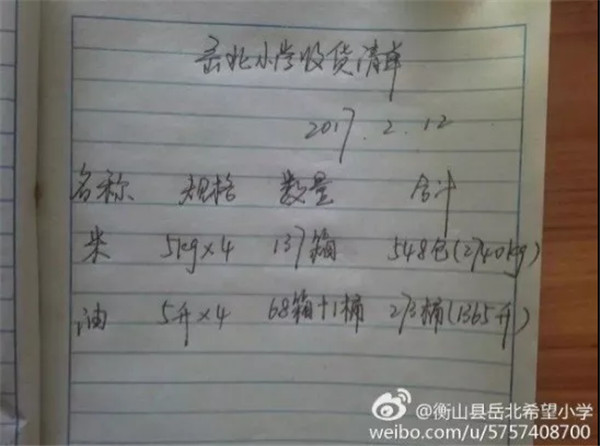 岳北小学收货清单
2017.2.12
名称 规格 数量 合计
米 5kg×4 137箱 548包(2740kg)
油 5升×4 68箱+1桶 273桶(1365升)
@衡山县岳北希望小学
weibo.com/u/5757408700